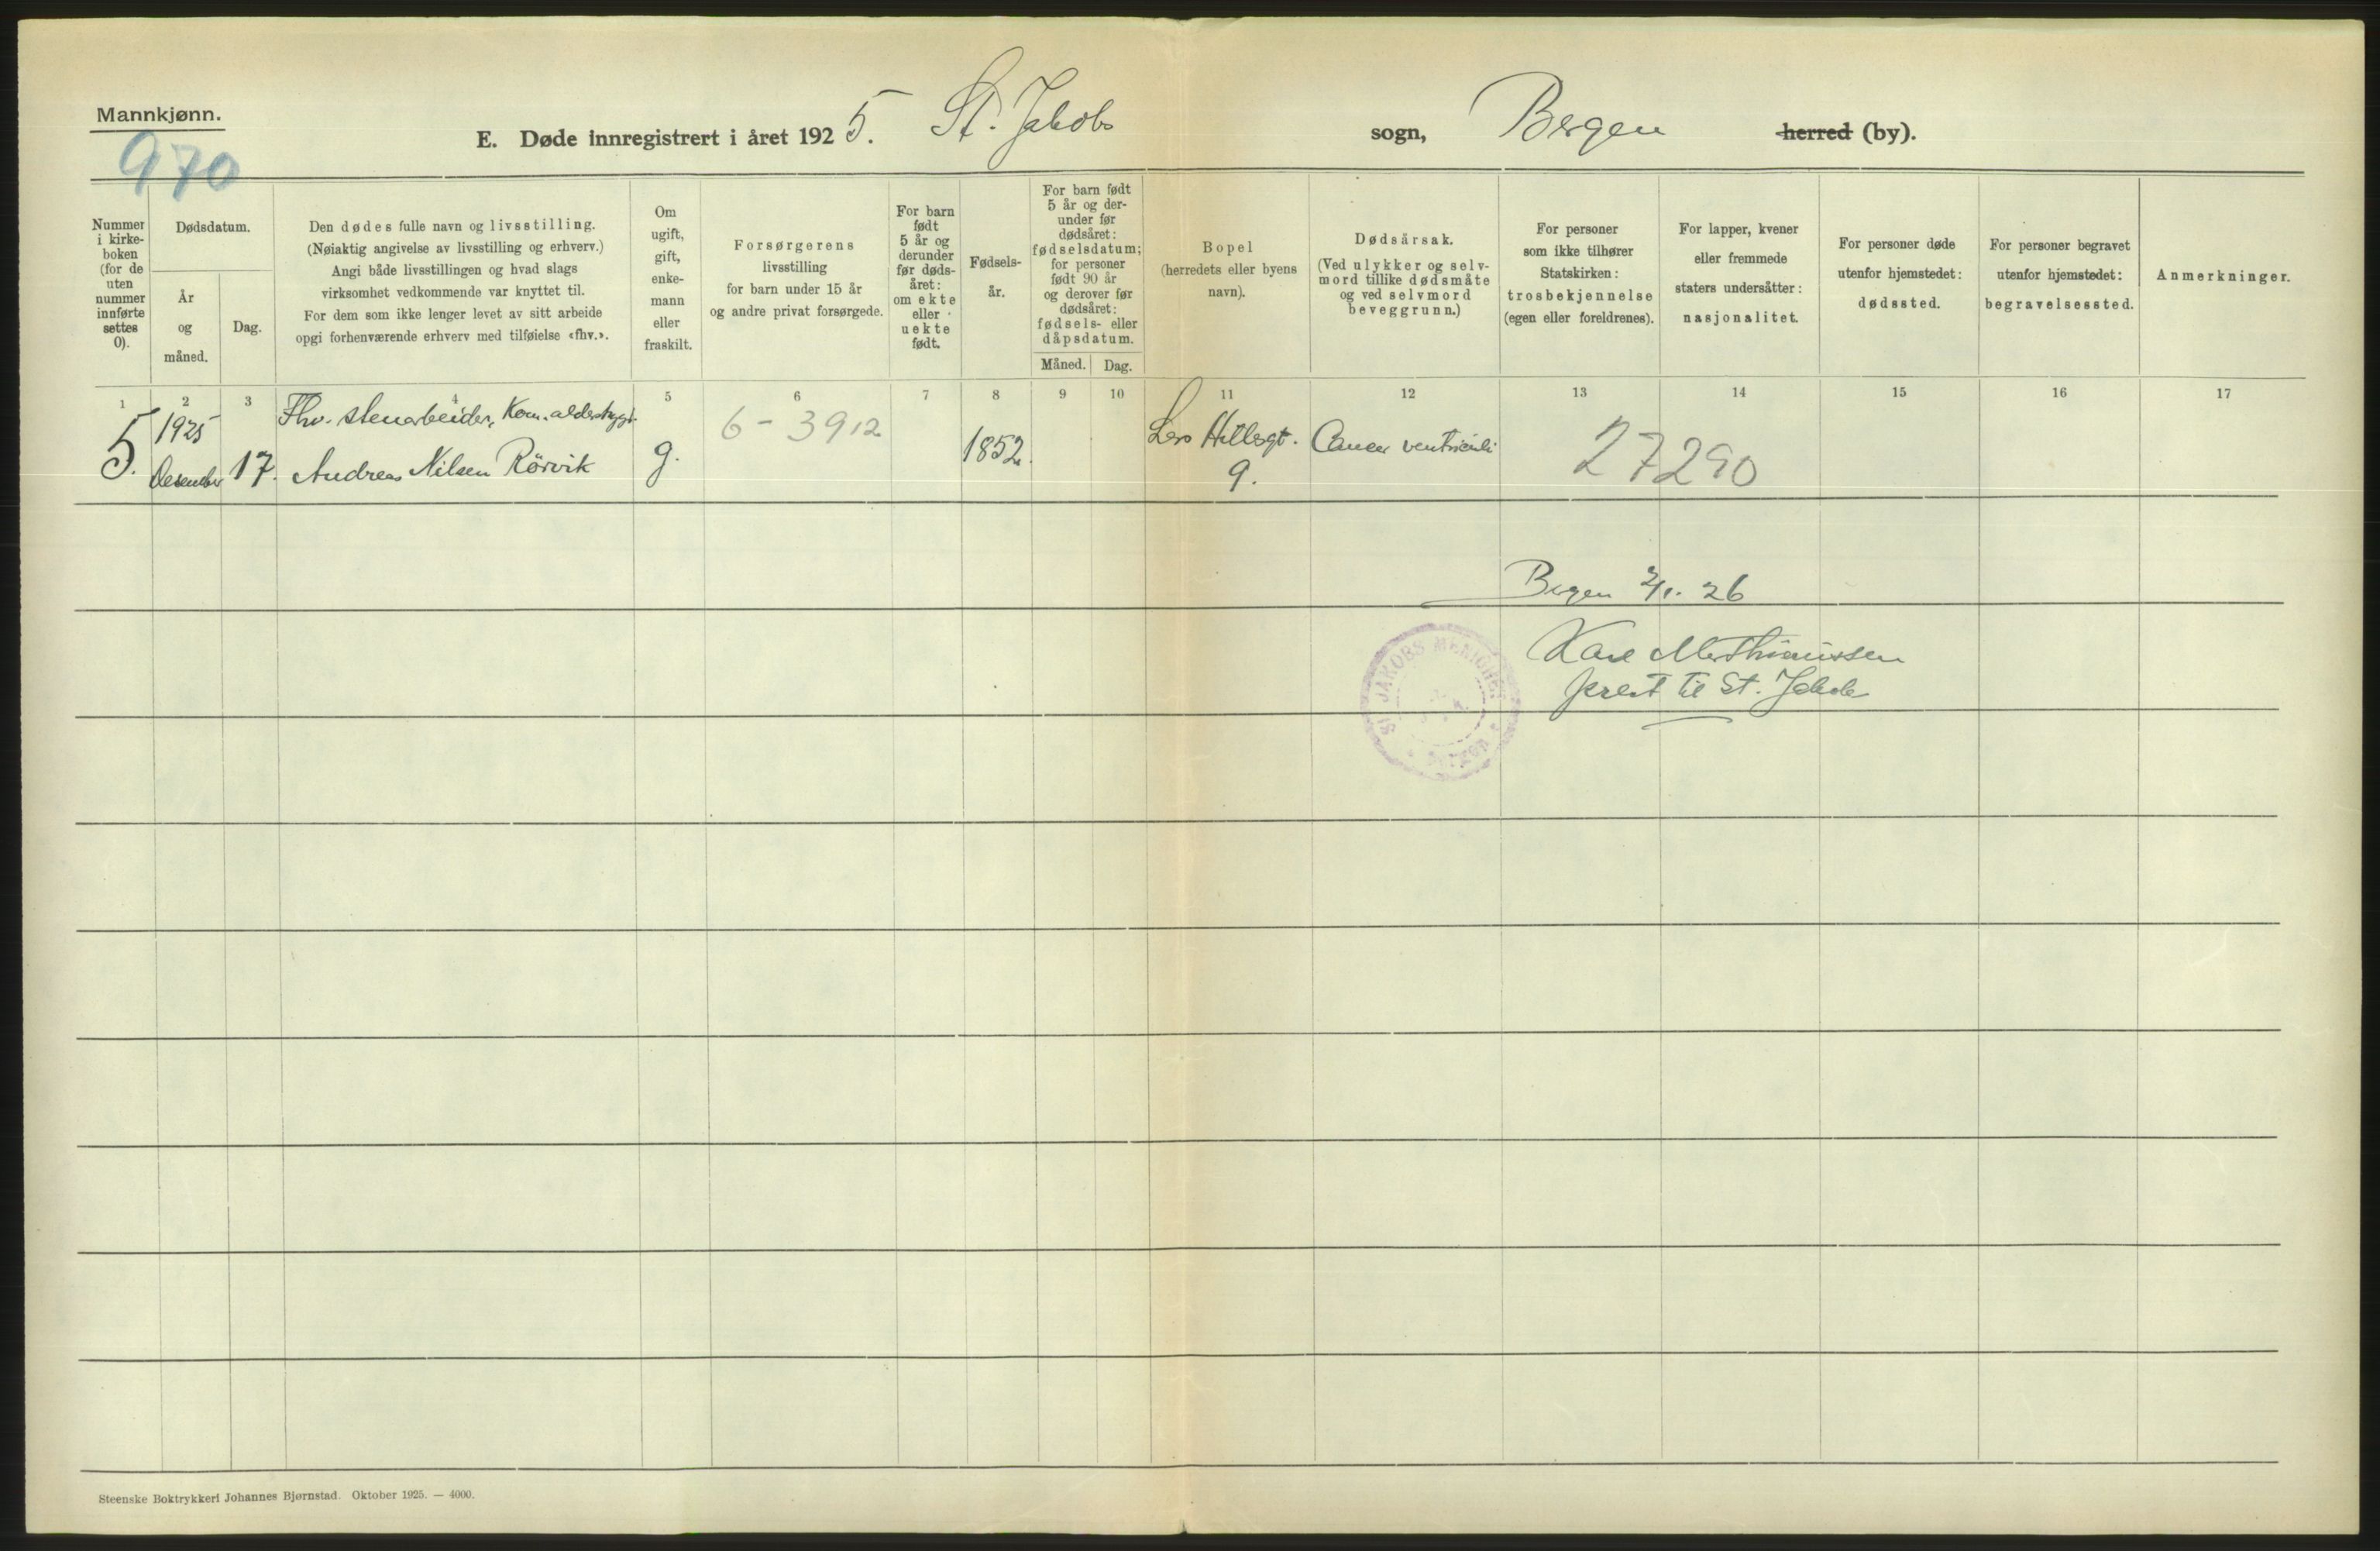 Mannkjønn.
970
E. Døde innregistrert i året 1925. St. Jakobs sogn, Bergen herred (by).
Nummer i kirke-boken (for de uten nummer innførte settes 0).
Dødsdatum.
År og måned.
Dag.
Den dødes fulle navn og livsstilling.
(Nøiaktig angivelse av livsstilling og erhverv.)
Angi både livsstillingen og hvad slags
virksomhet vedkommende var knyttet til.
For dem som ikke lenger levet av sitt arbeide
opgi forhenværende erhverv med tilføielse «fhv.».
Om ugift, gift, enke-mann eller fraskilt.
Forsørgerens
livsstilling
for barn under 15 år
og andre privat forsørgede.
For barn født 5 år og derunder før døds-året: om ekte eller uekte født.
Fødsels-år.
For barn født 5 år og der-under før dødsåret: fødselsdatum; for personer født 90 år og derover før dødsåret: fødsels- eller dåpsdatum.
Måned. Dag.
Bopel
(herredets eller byens
navn).
Dødsårsak.
(Ved ulykker og selv-
mord tillike dødsmåte
og ved selvmord
beveggrunn.)
For personer
som ikke tilhører
Statskirken:
trosbekjennelse
(egen eller foreldrenes).
For lapper, kvener
eller fremmede
staters undersåtter:
nasjonalitet.
For personer døde
utenfor hjemstedet:
dødssted.
For personer begravet
utenfor hjemstedet:
begravelsessted.
Anmerkninger.
1 2 3 4 5 6 7 8 9 10 11 12 13 14 15 16 17
5. 1925 Desember 17. Fhv. stenarbeider, Kom. alderstrygd.
Andreas Nilsen Rörvik g. 6-3912 1852. 9. Cancer ventriculi 27290
Bergen 2/1. 26
Mathiassen
prest til St. Jakob
ST JAKOBS MENIGHET
Bergen
Steenske Boktrykkeri Johannes Bjørnstad. Oktober 1925. — 4000.